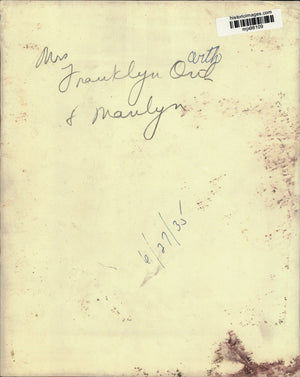 historicimages.com
Mrs
Franklyn
& Marilyn
6/27/35